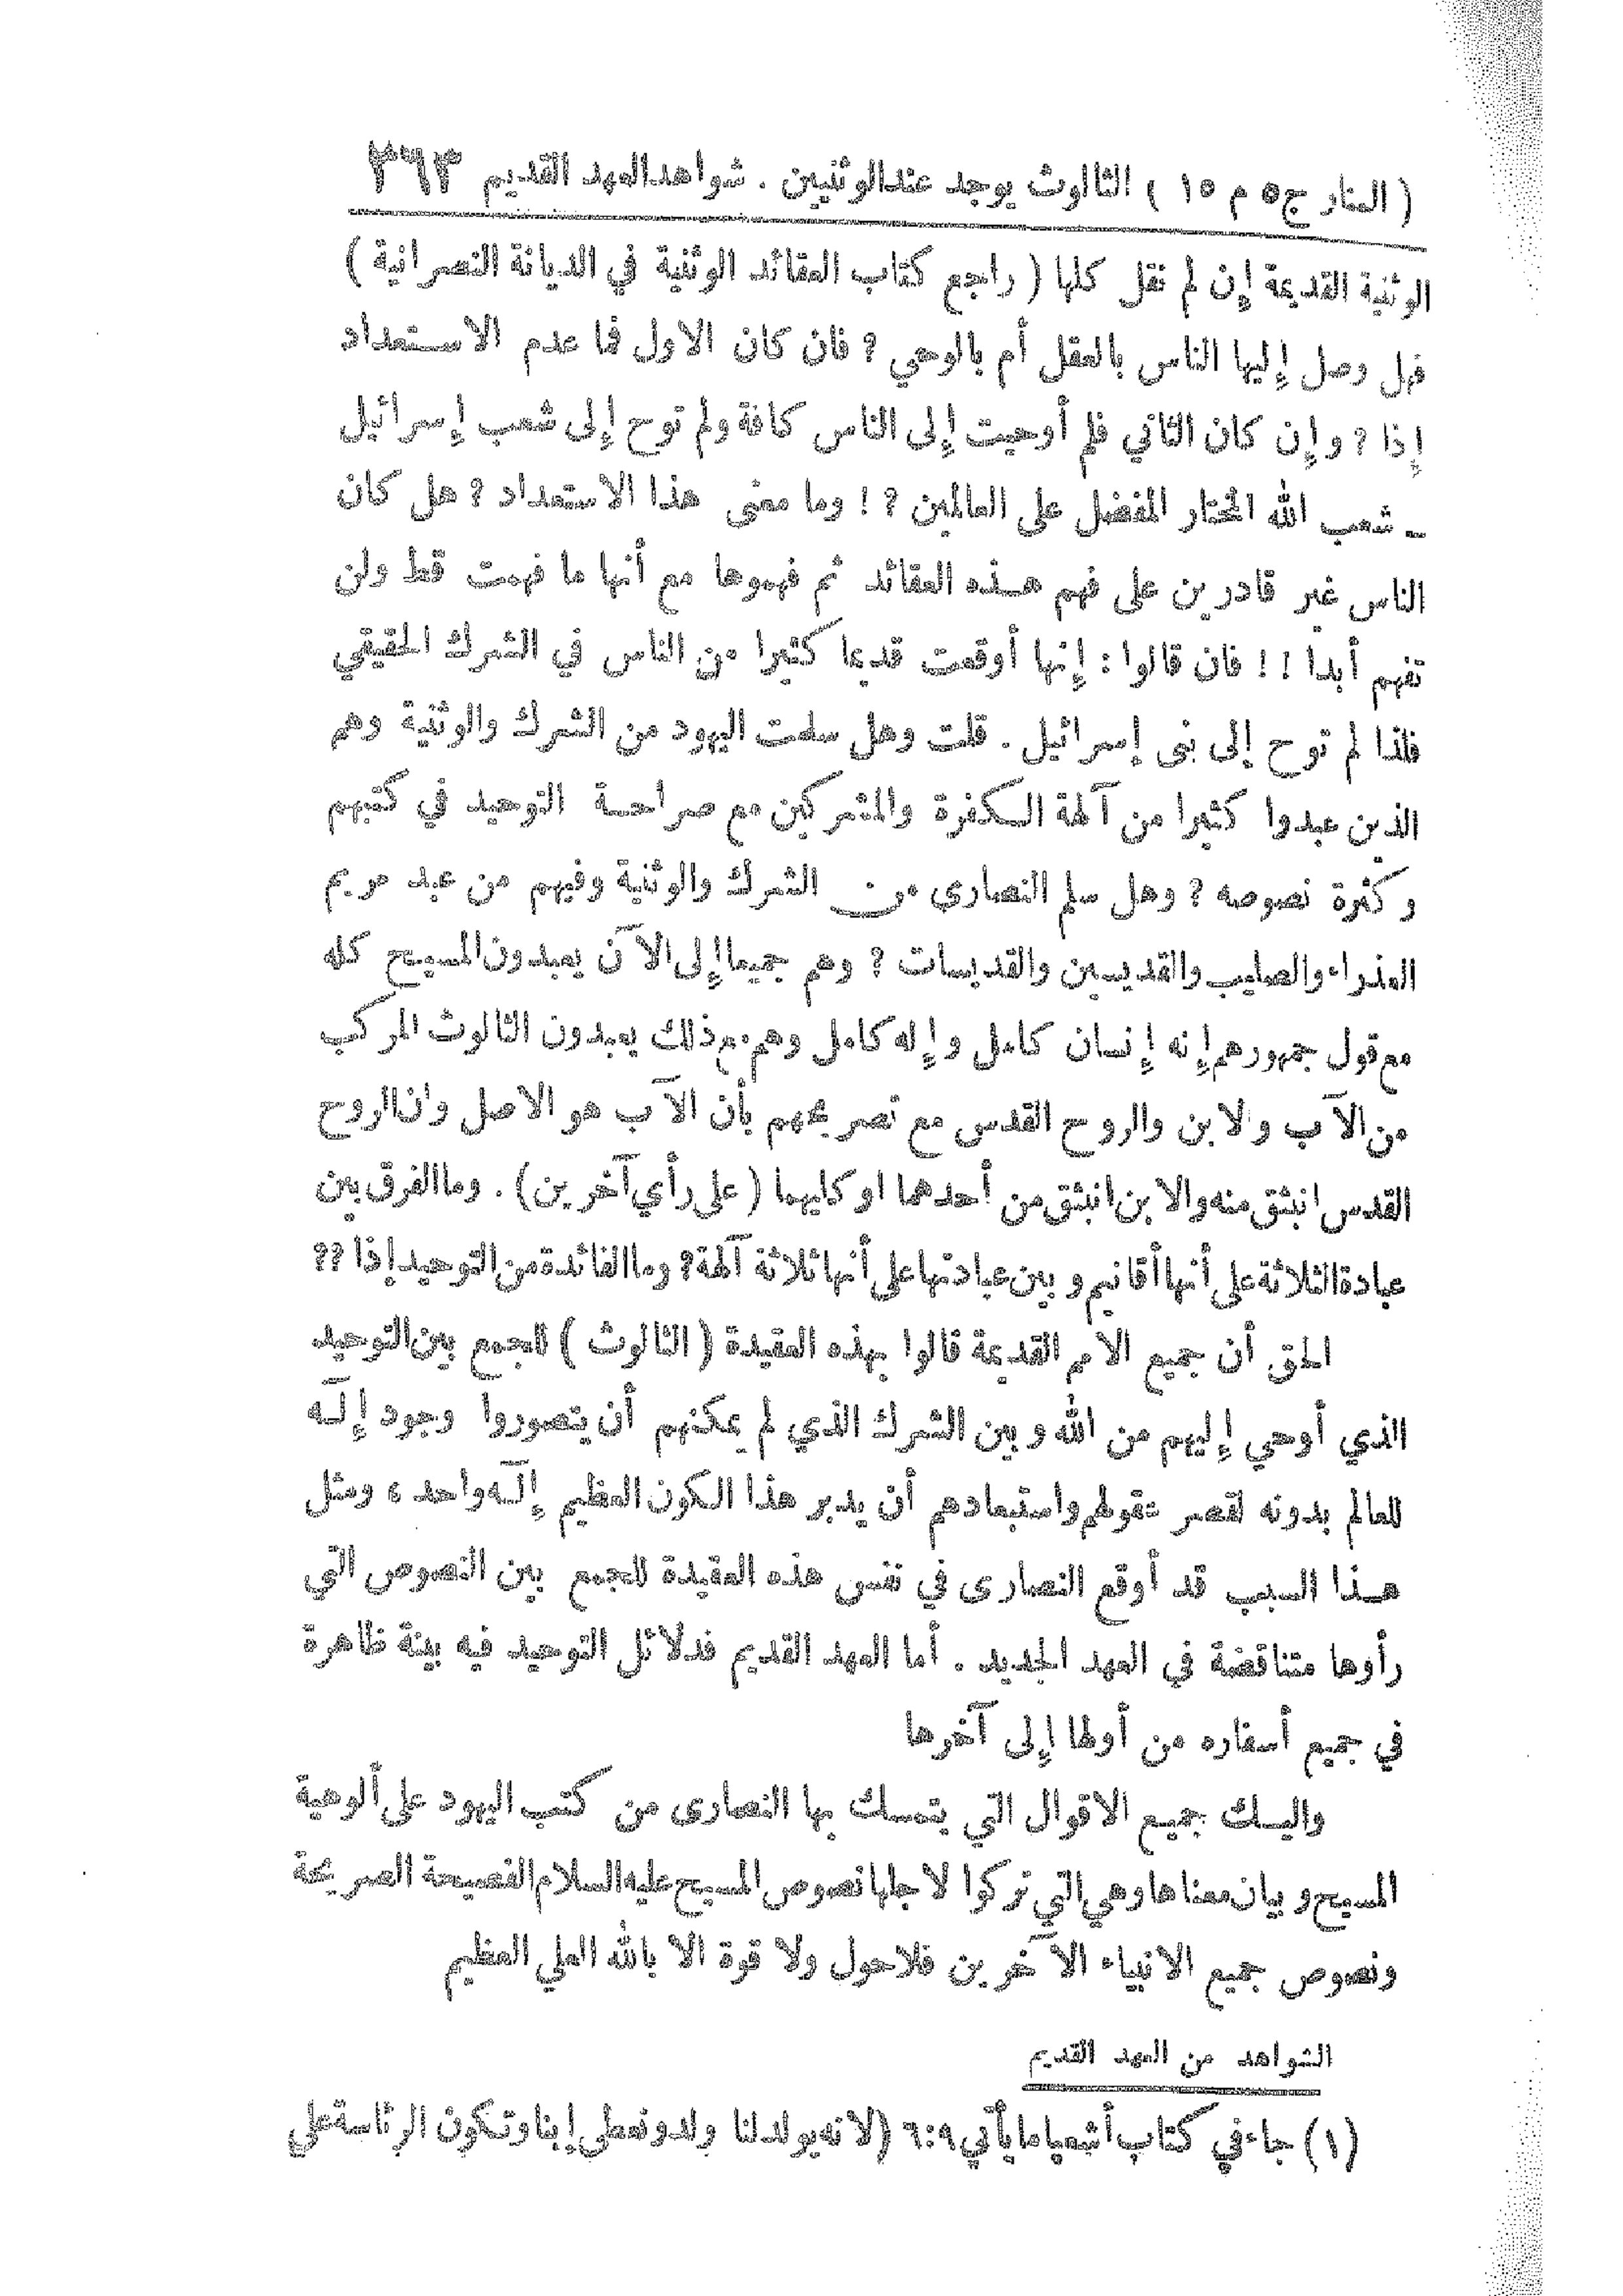 ( المنار ج٥ م ١٥ ) الثالوث يوجد عند الوثنيين . شواهد العهد القديم ٣٦٣
الوثنية القديمة إن لم نقل كلها ( راجع كتاب العقائد الوثنية في الديانة النصرانية )
فهل وصل إليها الناس بالعقل أم بالوحي ? فان كان الاول فما عدم الاستعداد
إذا ? وإن كان الثاني فلم أوحيت إلى الناس كافة ولم توح إلى شعب إسرائيل
ـ شعب الله المختار المفضل على العالمين ? ! وما معنى هذا الاستعداد ? هل كان
الناس غير قادرين على فهم هذه العقائد ثم فهموها مع أنها ما فهمت قط ولن
تفهم أبداً ! ! فان قالوا : إنها أوقعت قديما كثيرا من الناس في الشرك الحقيقي
فلذا لم توح إلى بني إسرائيل . قلت وهل سلمت اليهود من الشرك والوثنية وهم
الذين عبدوا كثيرا من آلهة الكفرة والمشركين مع صراحة التوحيد في كتبهم
وكثرة نصوصه ? وهل سلم النصارى من الشرك والوثنية وفيهم من عبد مريم
العذراء والصليب والقديسين والقديسات ? وهم جميعا إلى الآن يعبدون المسيح كله
مع قول جمهورهم إنه إنسان كامل وإله كامل وهم مع ذلك يعبدون الثالوث المركب
من الآب والابن والروح القدس مع تصريحهم بأن الآب هو الاصل وان الروح
القدس انبثق منه والابن انبثق من أحدهما او كليهما ( على رأي آخرين) . وما الفرق بين
عبادة الثلاثة على أنها أقانيم وبين عبادتها على أنها ثلاثة آلهة? وما الفائدة من التوحيد إذا ??
الحق أن جميع الامم القديمة قالوا بهذه العقيدة ( الثالوث ) للجمع بين التوحيد
الذي أوحي إليهم من الله وبين الشرك الذي لم يمكنهم أن يتصوروا وجود إلٓه
للعالم بدونه لقصر عقولهم واستبعادهم أن يدبر هذا الكون العظيم إلٓه واحد ، ومثل
هذا السبب قد أوقع النصارى في نفس هذه العقيدة للجمع بين النصوص التي
رأوها متناقضة في العهد الجديد . أما العهد القديم فدلائل التوحيد فيه بينة ظاهرة
في جميع أسفاره من أولها إلى آخرها
واليك جميع الاقوال التي يتمسك بها النصارى من كتب اليهود على ألوهية
المسيح وبيان معناها وهي التي تركوا لاجلها نصوص المسيح عليه السلام الفصيحة الصريحة
ونصوص جميع الانبياء الآخرين فلا حول ولا قوة الا بالله العلي العظيم
الشواهد من العهد القديم
(١) جاء في كتاب أشعيا ما يأتي ٩:٦ (لانه يولد لنا ولد ونعطى إبنا وتكون الرئاسة على